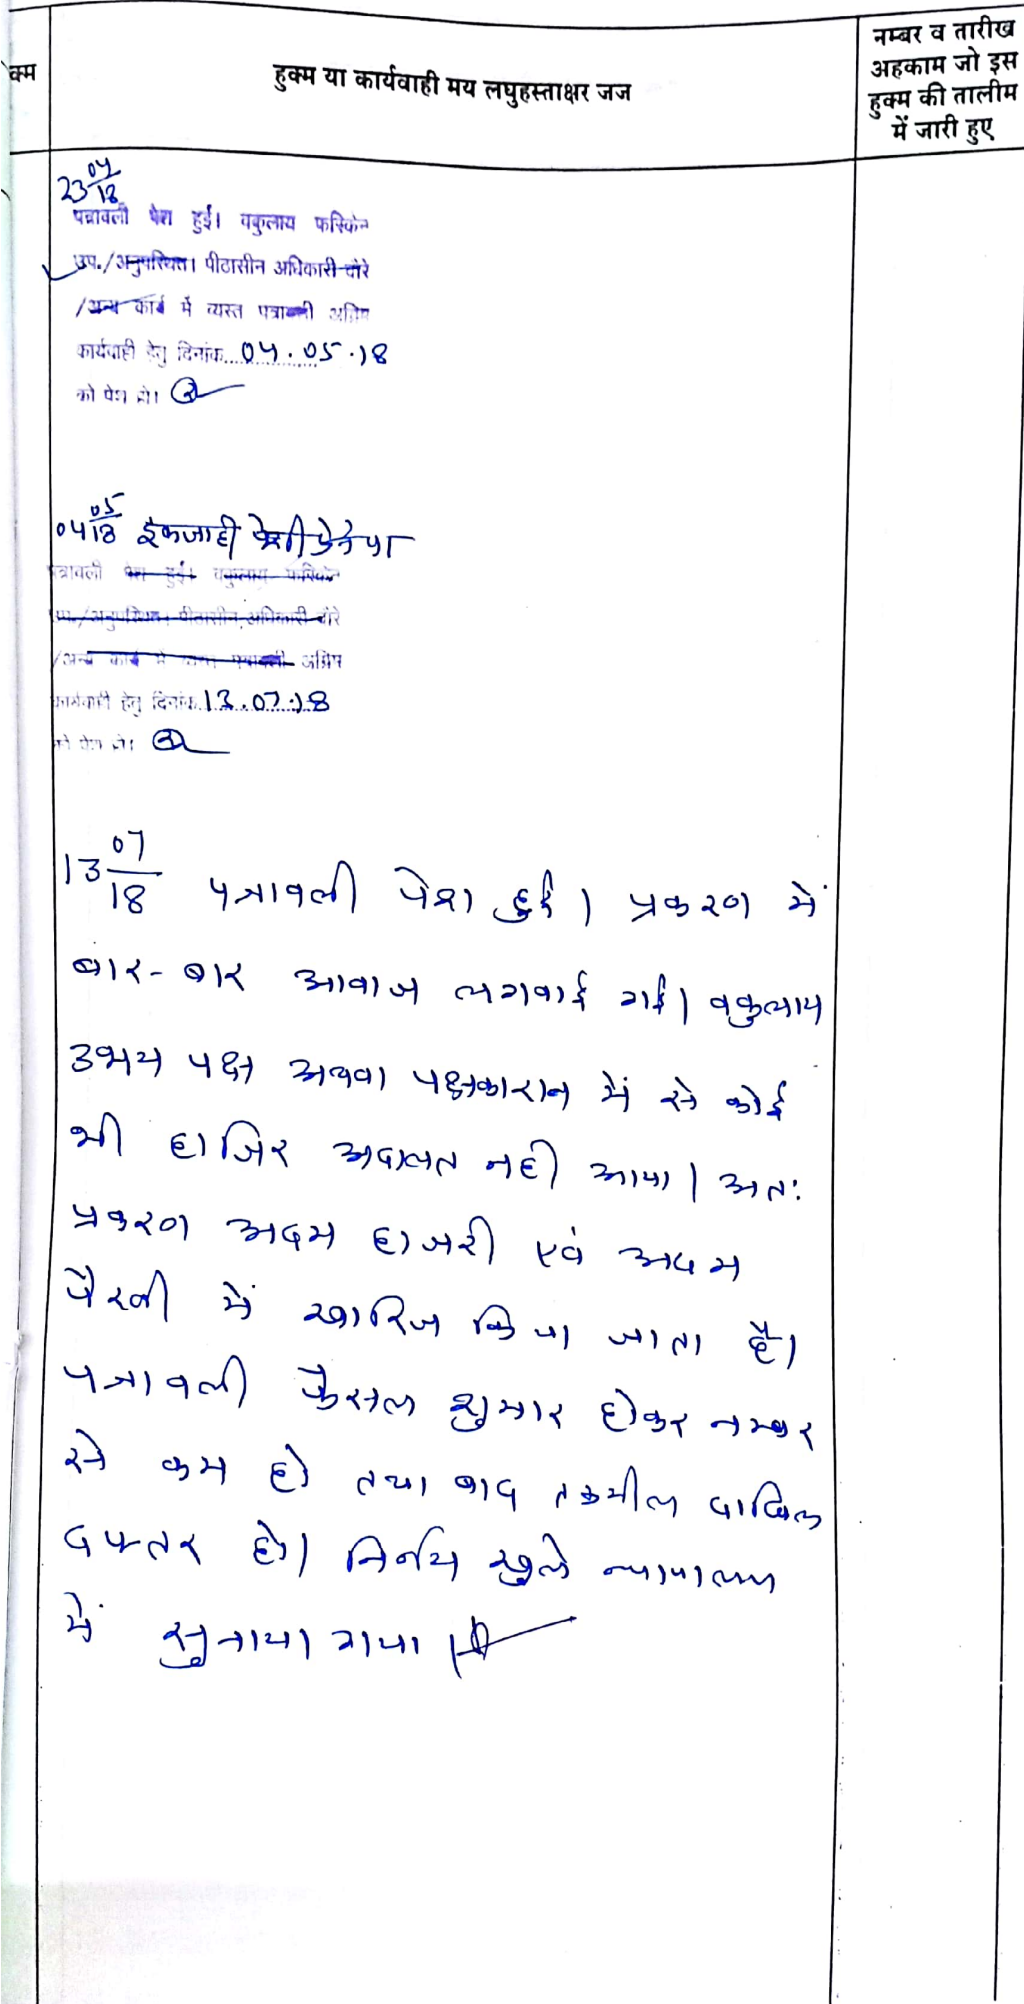 क्म
हुक्म या कार्यवाही मय लघुहस्ताक्षर जज
नम्बर व तारीख
अहकाम जो इस
हुक्म की तालीम
में जारी हुए
23 04/18
पत्रावली पेश हुई। वकुलाय फरिकेन
उप./अनुपस्थित। पीठासीन अधिकारी दौरे
/अन्य कार्य में व्यस्त पत्रावली अग्रिम
कार्यवाही हेतु दिनांक...04.05.18
को पेश हो।
04 05/18
पत्रावली पेश हुई। वकुलाय फरिकेन
उप./अनुपस्थित। पीठासीन अधिकारी दौरे
/अन्य कार्य में व्यस्त पत्रावली अग्रिम
कार्यवाही हेतु दिनांक.13.07.18
को पेश हो।
13 07/18 पत्रावली पेश हुई। प्रकरण में
बार-बार आवाज लगवाई गई। वकुलाय
उभय पक्ष अथवा पक्षकारान में से कोई
भी हाजिर अदालत नही आया। अतः
प्रकरण अदम हाजरी एवं अदम
पैरवी में खारिज किया जाता है।
पत्रावली फैसल शुमार होकर नम्बर
से कम हो तथा बाद तकमील दाखिल
दफ्तर हो। निर्णय खुले न्यायालय
में सुनाया गया।